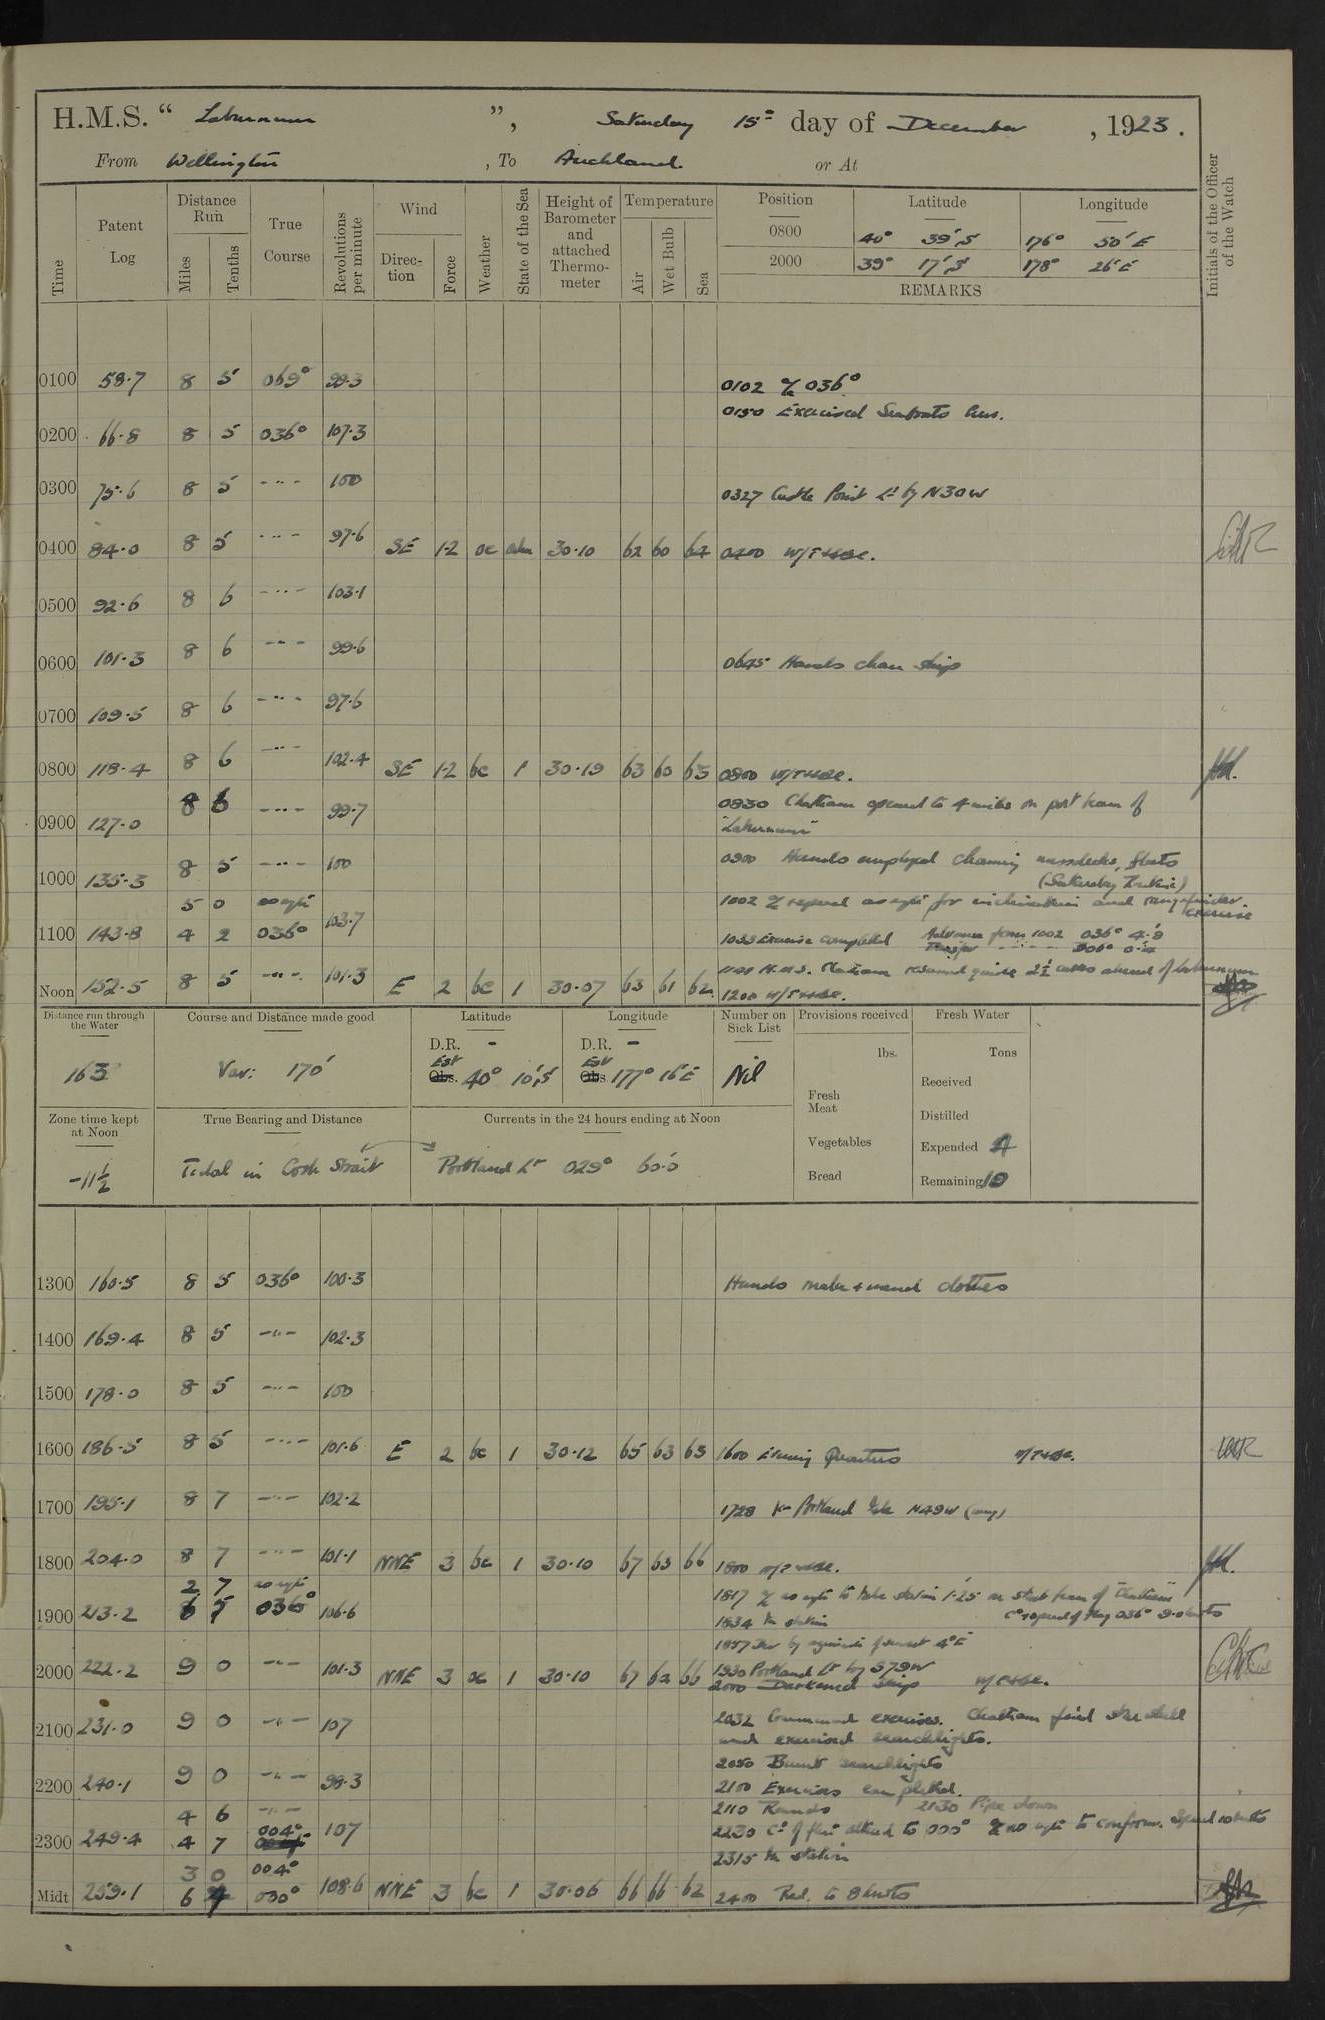 H.M.S. “ Laburnum ”, Saturday 15th day of December , 1923.
From Wellington , To Auckland. or At
Time
Patent Log
Distance Run
Miles
Tenths
True Course
Revolutions per minute
Wind
Direction
Force
Weather
State of the Sea
Height of Barometer and attached Thermometer
Temperature
Air
Wet Bulb
Sea
Position Latitude Longitude
0800 40° 39' S 176° 50' E
2000 39° 17' S 178° 26' E
REMARKS
Initials of the Officer of the Watch
0100 58.7 8 5 069° 99.3 0102 a/c 036°
0150 Exercised Seaboats Crew.
0200 66.8 8 5 036° 107.3
0300 75.6 8 5 -"- 100 0327 Castle Point Lt by N30W
0400 84.0 8 5 -"- 97.6 SE 1-2 oc 30.10 62 60 64 0400 W/T
0500 92.6 8 6 -"- 103.1
0600 101.3 8 6 -"- 99.6 0645 Hands clean ship
0700 109.5 8 6 -"- 97.6
0800 118.4 8 6 -"- 102.4 SE 1-2 bc 1 30.19 63 60 63 0800 W/T
0900 127.0 8 6 -"- 99.7 0830 Chatham opened to 4 miles on port beam of
"Laburnum"
1000 135.3 8 5 -"- 100 0900 Hands employed cleaning messdecks, flats
(Saturday Routine)
5 0 as reqte 1002 a/c & speed as reqte for inclination and rangefinder exercise
1100 143.8 4 2 036° 103.7 1033 Exercise completed Advance from 1002 036° 4.'9
Noon 152.5 8 5 -"- 101.3 E 2 bc 1 30.07 63 61 62 H.M.S. Chatham resumed guide 2½ cables ahead of Laburnum
1200 W/T
Distance run through the Water
163
Course and Distance made good
Var: 170'
Latitude
D.R. -
Est Obs. 40° 10' S
Longitude
D.R. -
Est Obs 177° 16' E
Number on Sick List
Nil
Provisions received
lbs.
Fresh Meat
Vegetables
Bread
Fresh Water
Tons
Received
Distilled
Expended 4
Remaining 10
Zone time kept at Noon
-11½
True Bearing and Distance
Tidal in Cook Strait
Currents in the 24 hours ending at Noon
Portland Lt 029° 60.'0
1300 160.5 8 5 036° 100.3 Hands make & mend clothes
1400 169.4 8 5 -"- 102.3
1500 178.0 8 5 -"- 100
1600 186.5 8 5 -"- 101.6 E 2 bc 1 30.12 65 63 63 1600 Evening Quarters W/T
1700 195.1 8 7 -"- 102.2 1728 Portland Isle N49W
1800 204.0 8 7 -"- 101.1 NNE 3 bc 1 30.10 67 63 66 1800 W/T
2 7 as reqte 1817 a/c as reqte to take station 1.'25 on starbd beam of "Chatham"
1900 213.2 6 5 036° 106.6 1834 In station Co & speed of Flag 036° 9.0 knots
2000 222.2 9 0 -"- 101.3 NNE 3 oc 1 30.10 67 62 66 1930 Portland Lt by S79W
2000 Darkened ship W/T
2100 231.0 9 0 -"- 107 2032 Command exercises. Chatham fired star shell
and exercised searchlights.
2050 Burnt searchlights
2200 240.1 9 0 -"- 99.3 2100 Exercises completed.
4 6 -"- 2110 Rounds 2130 Pipe down
2300 249.4 4 7 004° 107 2230 Co of fleet altered to 000° a/c as reqte to conform. Speed 10 knots
2315 In station
3 0 004°
Midt 259.1 6 4 000° 108.6 NNE 3 bc 1 30.06 66 66 62 2400 Red. to 8 knots